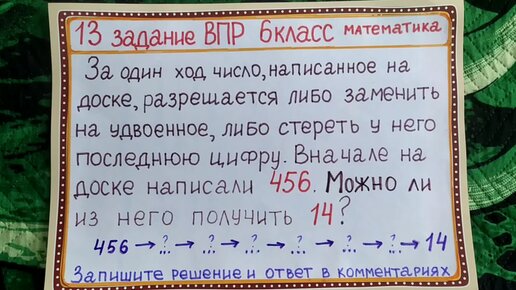 13 задание ВПР 6класс математика
За один ход число, написанное на
доске, разрешается либо заменить
на удвоенное, либо стереть у него
последнюю цифру. Вначале на
доске написали 456. Можно ли
из него получить 14?
456 → ?... → ?... → ?... → ?... → ?... → ?... → 14
Запишите решение и ответ в комментариях